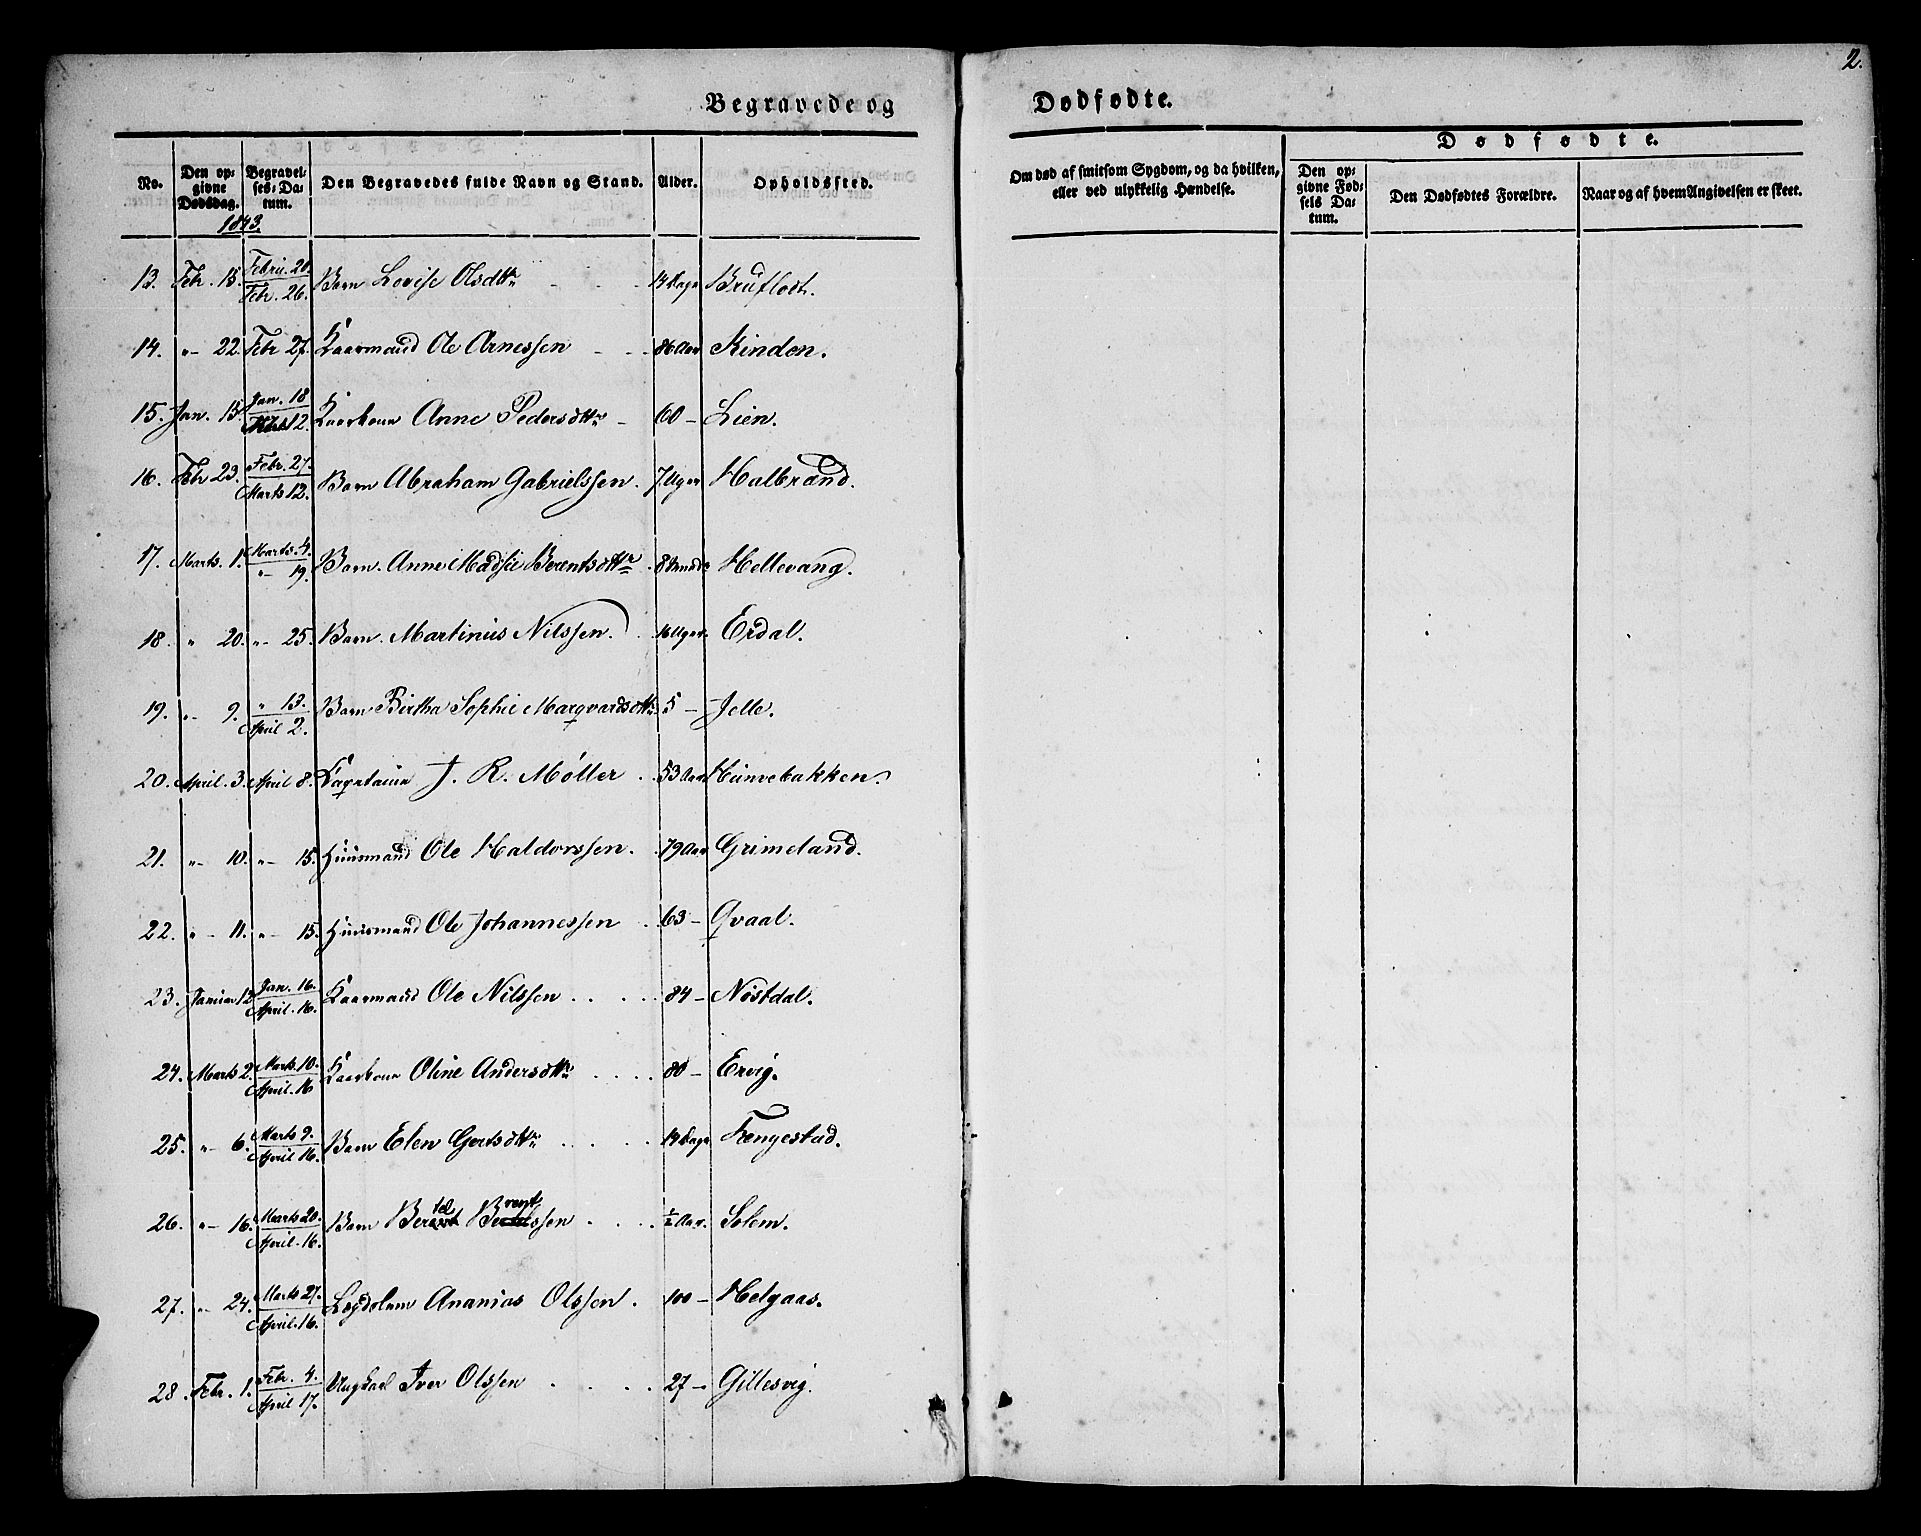 2.
Begravede og Dødfødte.
No. Den opgivne Dødsdag. Begravelses-Datum. Den Begravedes fulde Navn og Stand. Alder. Opholdssted. Om død af smitsom Sygdom, og da hvilken, eller ved ulykkelig Hændelse. Dødfødte. Den opgivne Fødsels Datum. Den Dødfødtes Forældre. Naar og af hvem Angivelsen er skeet.
1843.
13. Febr. 15. Febru. 20. Febr. 26. Barn Lovise Olsdttr 14 Dage Bruflodt.
14. "- 22. Febr 27. Kaarmand Ole Arnessen 86 Aar Kinden.
15. Jan. 15. Jan. 18 Marts 12. Kaarkone Anne Pedersdttr 60 - Lien.
16. Febr 23. Febr. 27. Marts 12. Barn Abraham Gabrielssen. 7 Uger Halbrand.
17. Marts. 1. Marts. 4. "- 19. Barn. Anne Madsie Berentsdttr 8 Hellevang.
18. " 20. "- 25. Barn. Martinus Nilssen. 16 Uger. Erdal.
19. "- 9. " 13. April 2. Barn Birtha Sophie Marqvardsdttr 5 - Jelle.
20. April. 3. April 8. Capitaine J. R. Møller 53 Aar Hunvebakken.
21. "- 10. "- 15. Huusmand Ole Haldorssen. 79 Aar Grimeland.
22. "- 11. "- 15. Huusmand Ole Johannessen 63 - Qvaal.
23. Januar 12 Jan. 16. April. 16. Kaarmand Ole Nilssen 84 - Nøstdal.
24. Marts 2. Marts. 10. April. 16 Kaarkone Oline Andersdttr 80 - Ervig.
25. "- 6. Marts 9. April 16. Barn Elen Gertsdttr 14 Dage Fængestad.
26. "- 16. Marts 20. April. 16. Barn Bertel Berentssen ½ Aar. Solem.
27. "- 24. Marts 27. April. 16. Lægdslem Ananias Olssen. 100 - Helgaas.
28. Febr. 1. Febr. 4. April 17. Ungkarl Iver Olssen 27 - Gillesvig.